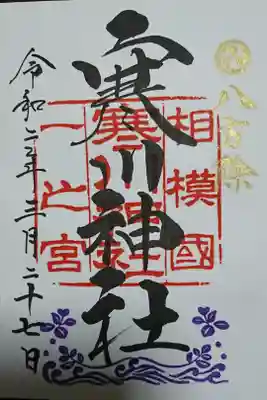 八方除
寒川神社
相模國
一之宮
令和二年三月二十七日